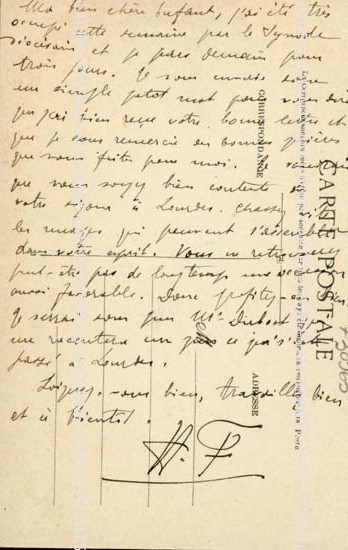 Ma bien chère enfant, j'ai été très
occupé cette semaine par le Synode
diocésain et je pars demain pour
trois jours. Je vous envoie donc
un simple petit mot pour vous dire
que j'ai bien reçu votre bonne lettre et
que je vous remercie des bonnes prières
que vous faites pour moi. Je
que vous soyez bien contente de
votre séjour à Lourdes. Chassez
les nuages qui peuvent s'assembler
dans votre esprit. Vous ne retrouverez
peut-être pas de longtemps une occasion
aussi favorable. Donc profitez-en bien.
Je serai sous peu Mr Dubost
me racontera un peu ce qui s'est
passé à Lourdes.
Soignez-vous bien, travaillez bien
et à bientôt.
H. F.
CARTE POSTALE
CORRESPONDANCE
ADRESSE